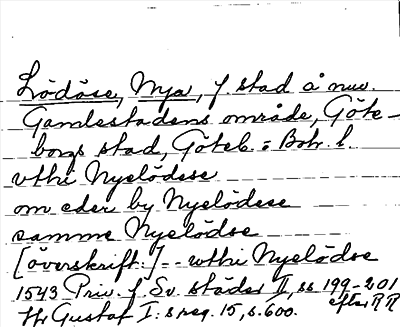 Lödöse, Nya, f. stad å nuv.
Gamlestadens område, Göte-
borgs stad, Göteb. o Boh. l.
vthi Nyelödese
om eder by Nyelödese
samme Nyelödse
[överskrift:] - wthi Nyelödse
1543 Priv. f. Sv. städer II, ss 199-201
Gustaf I:s reg. 15, s. 600. efter RR